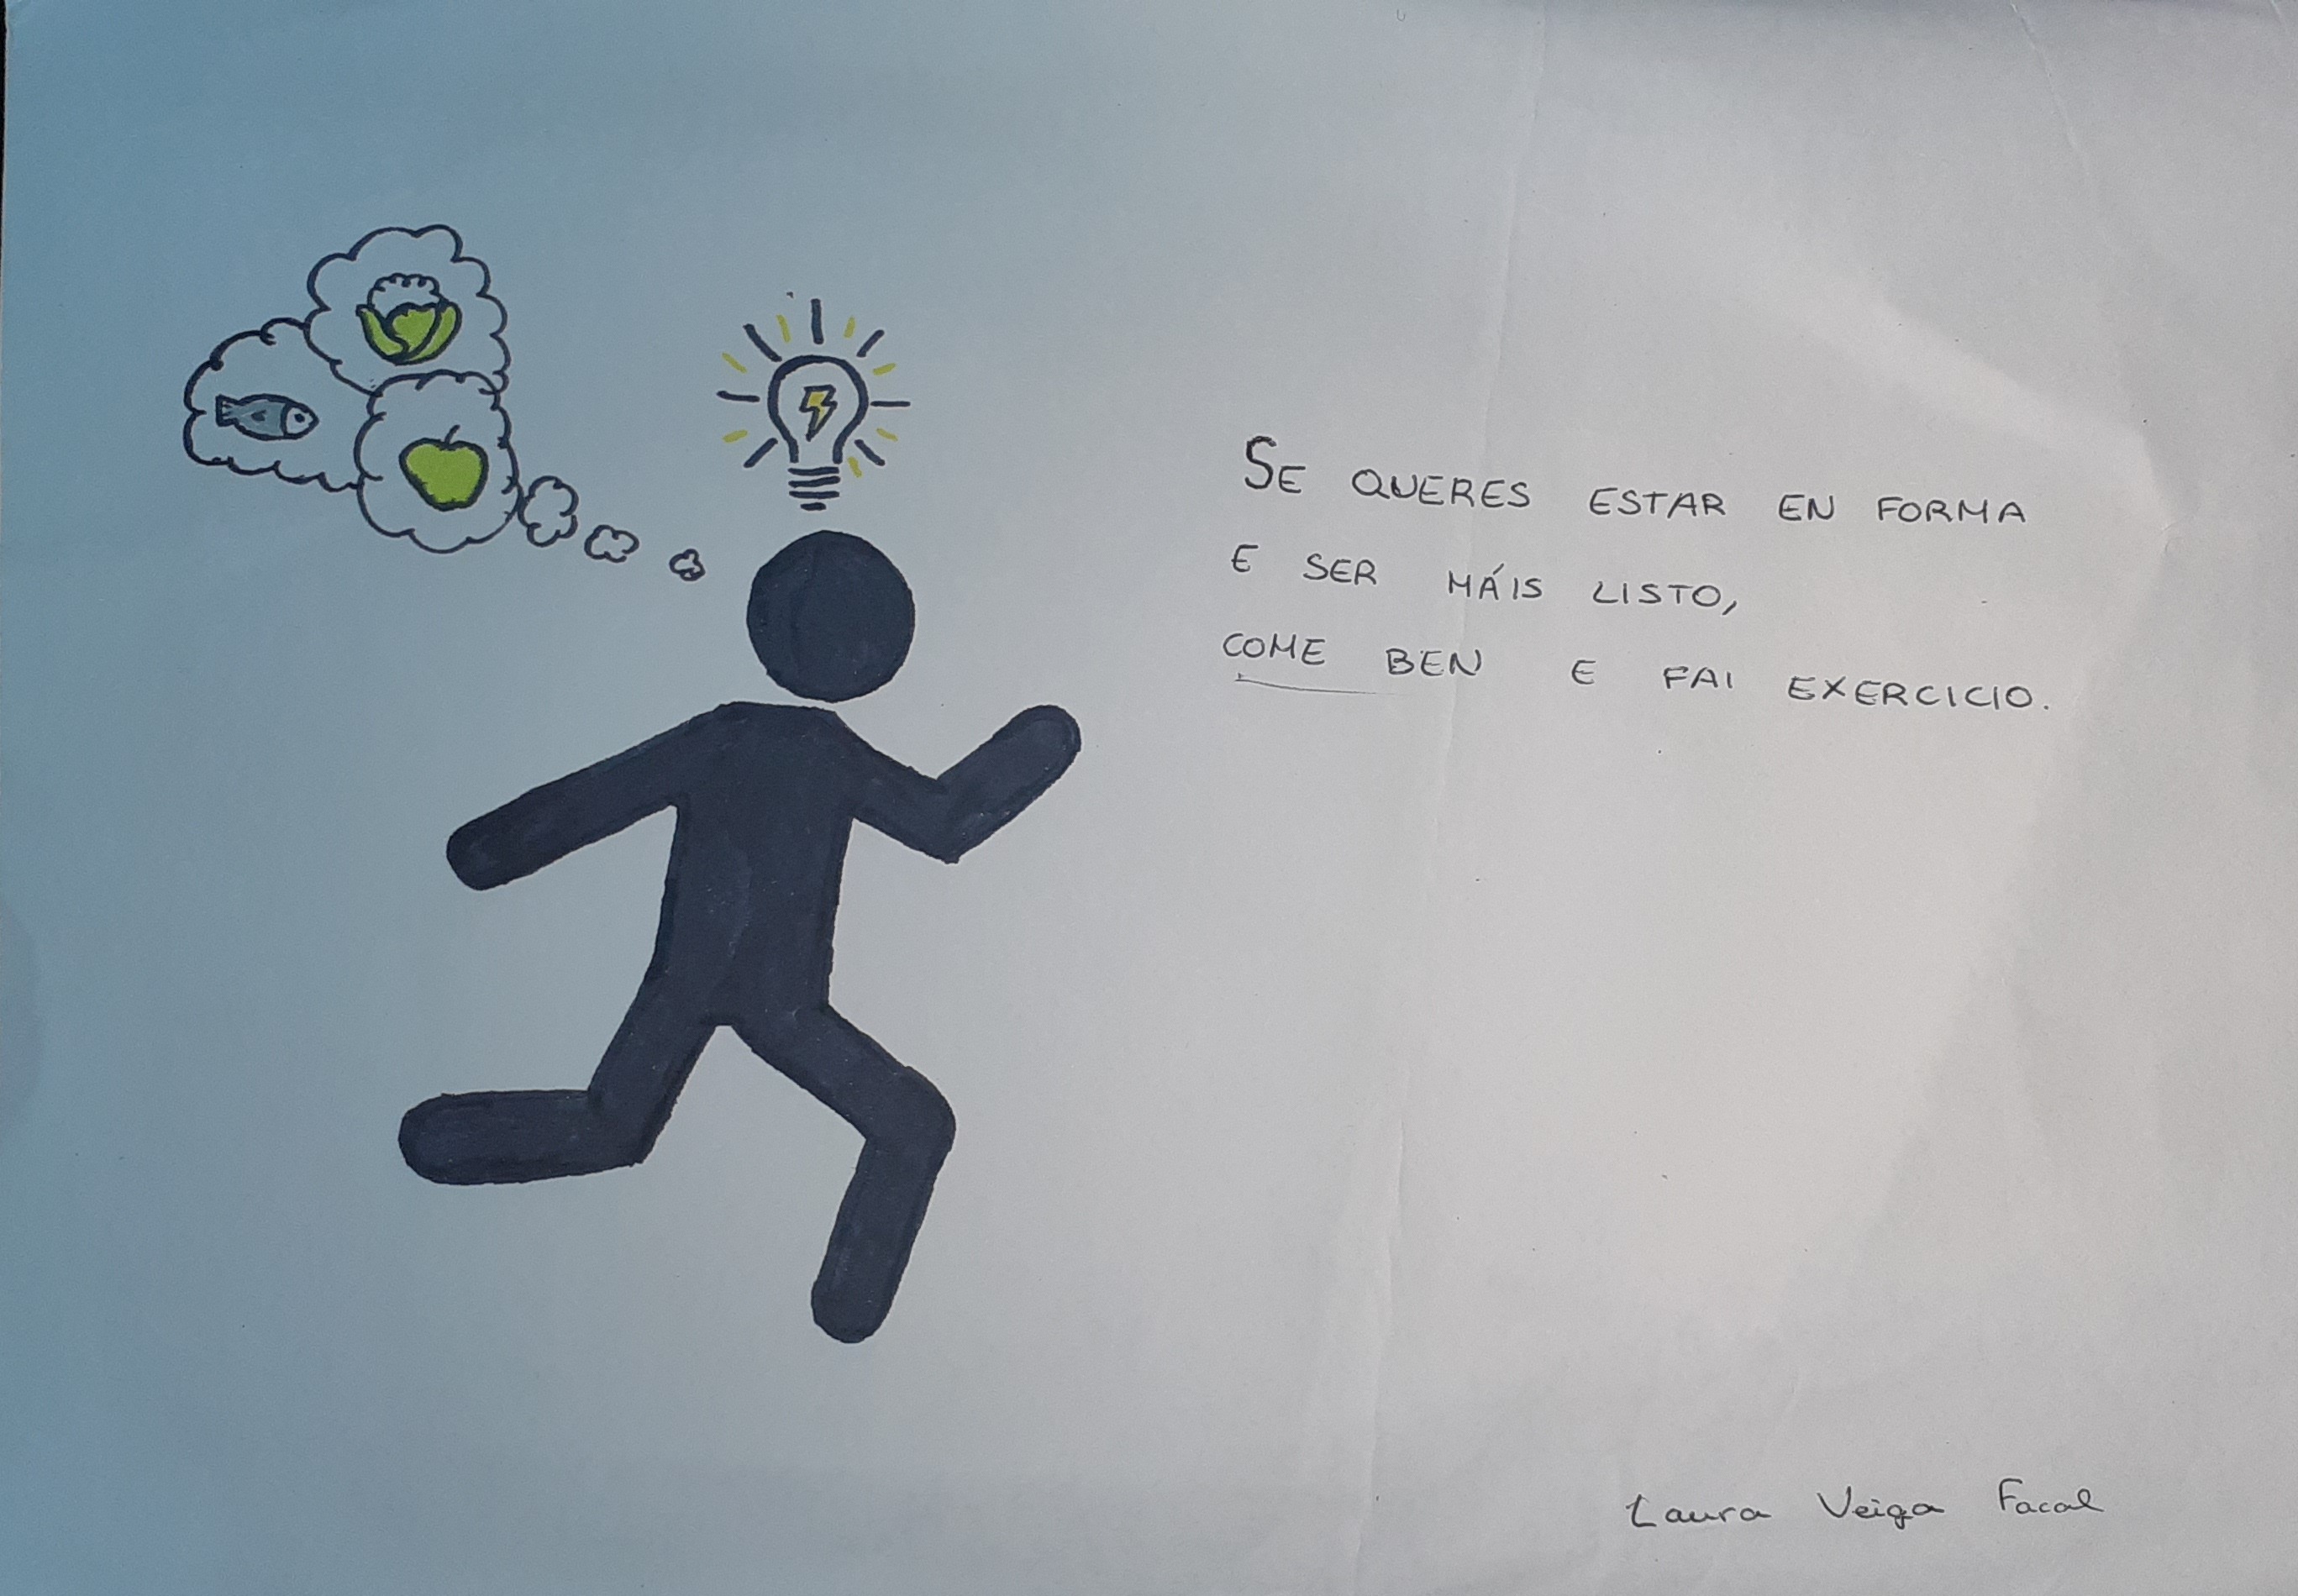 SE QUERES ESTAR EN FORMA
E SER MÁIS LISTO,
COME BEN E FAI EXERCICIO.
Laura Veiga Facal